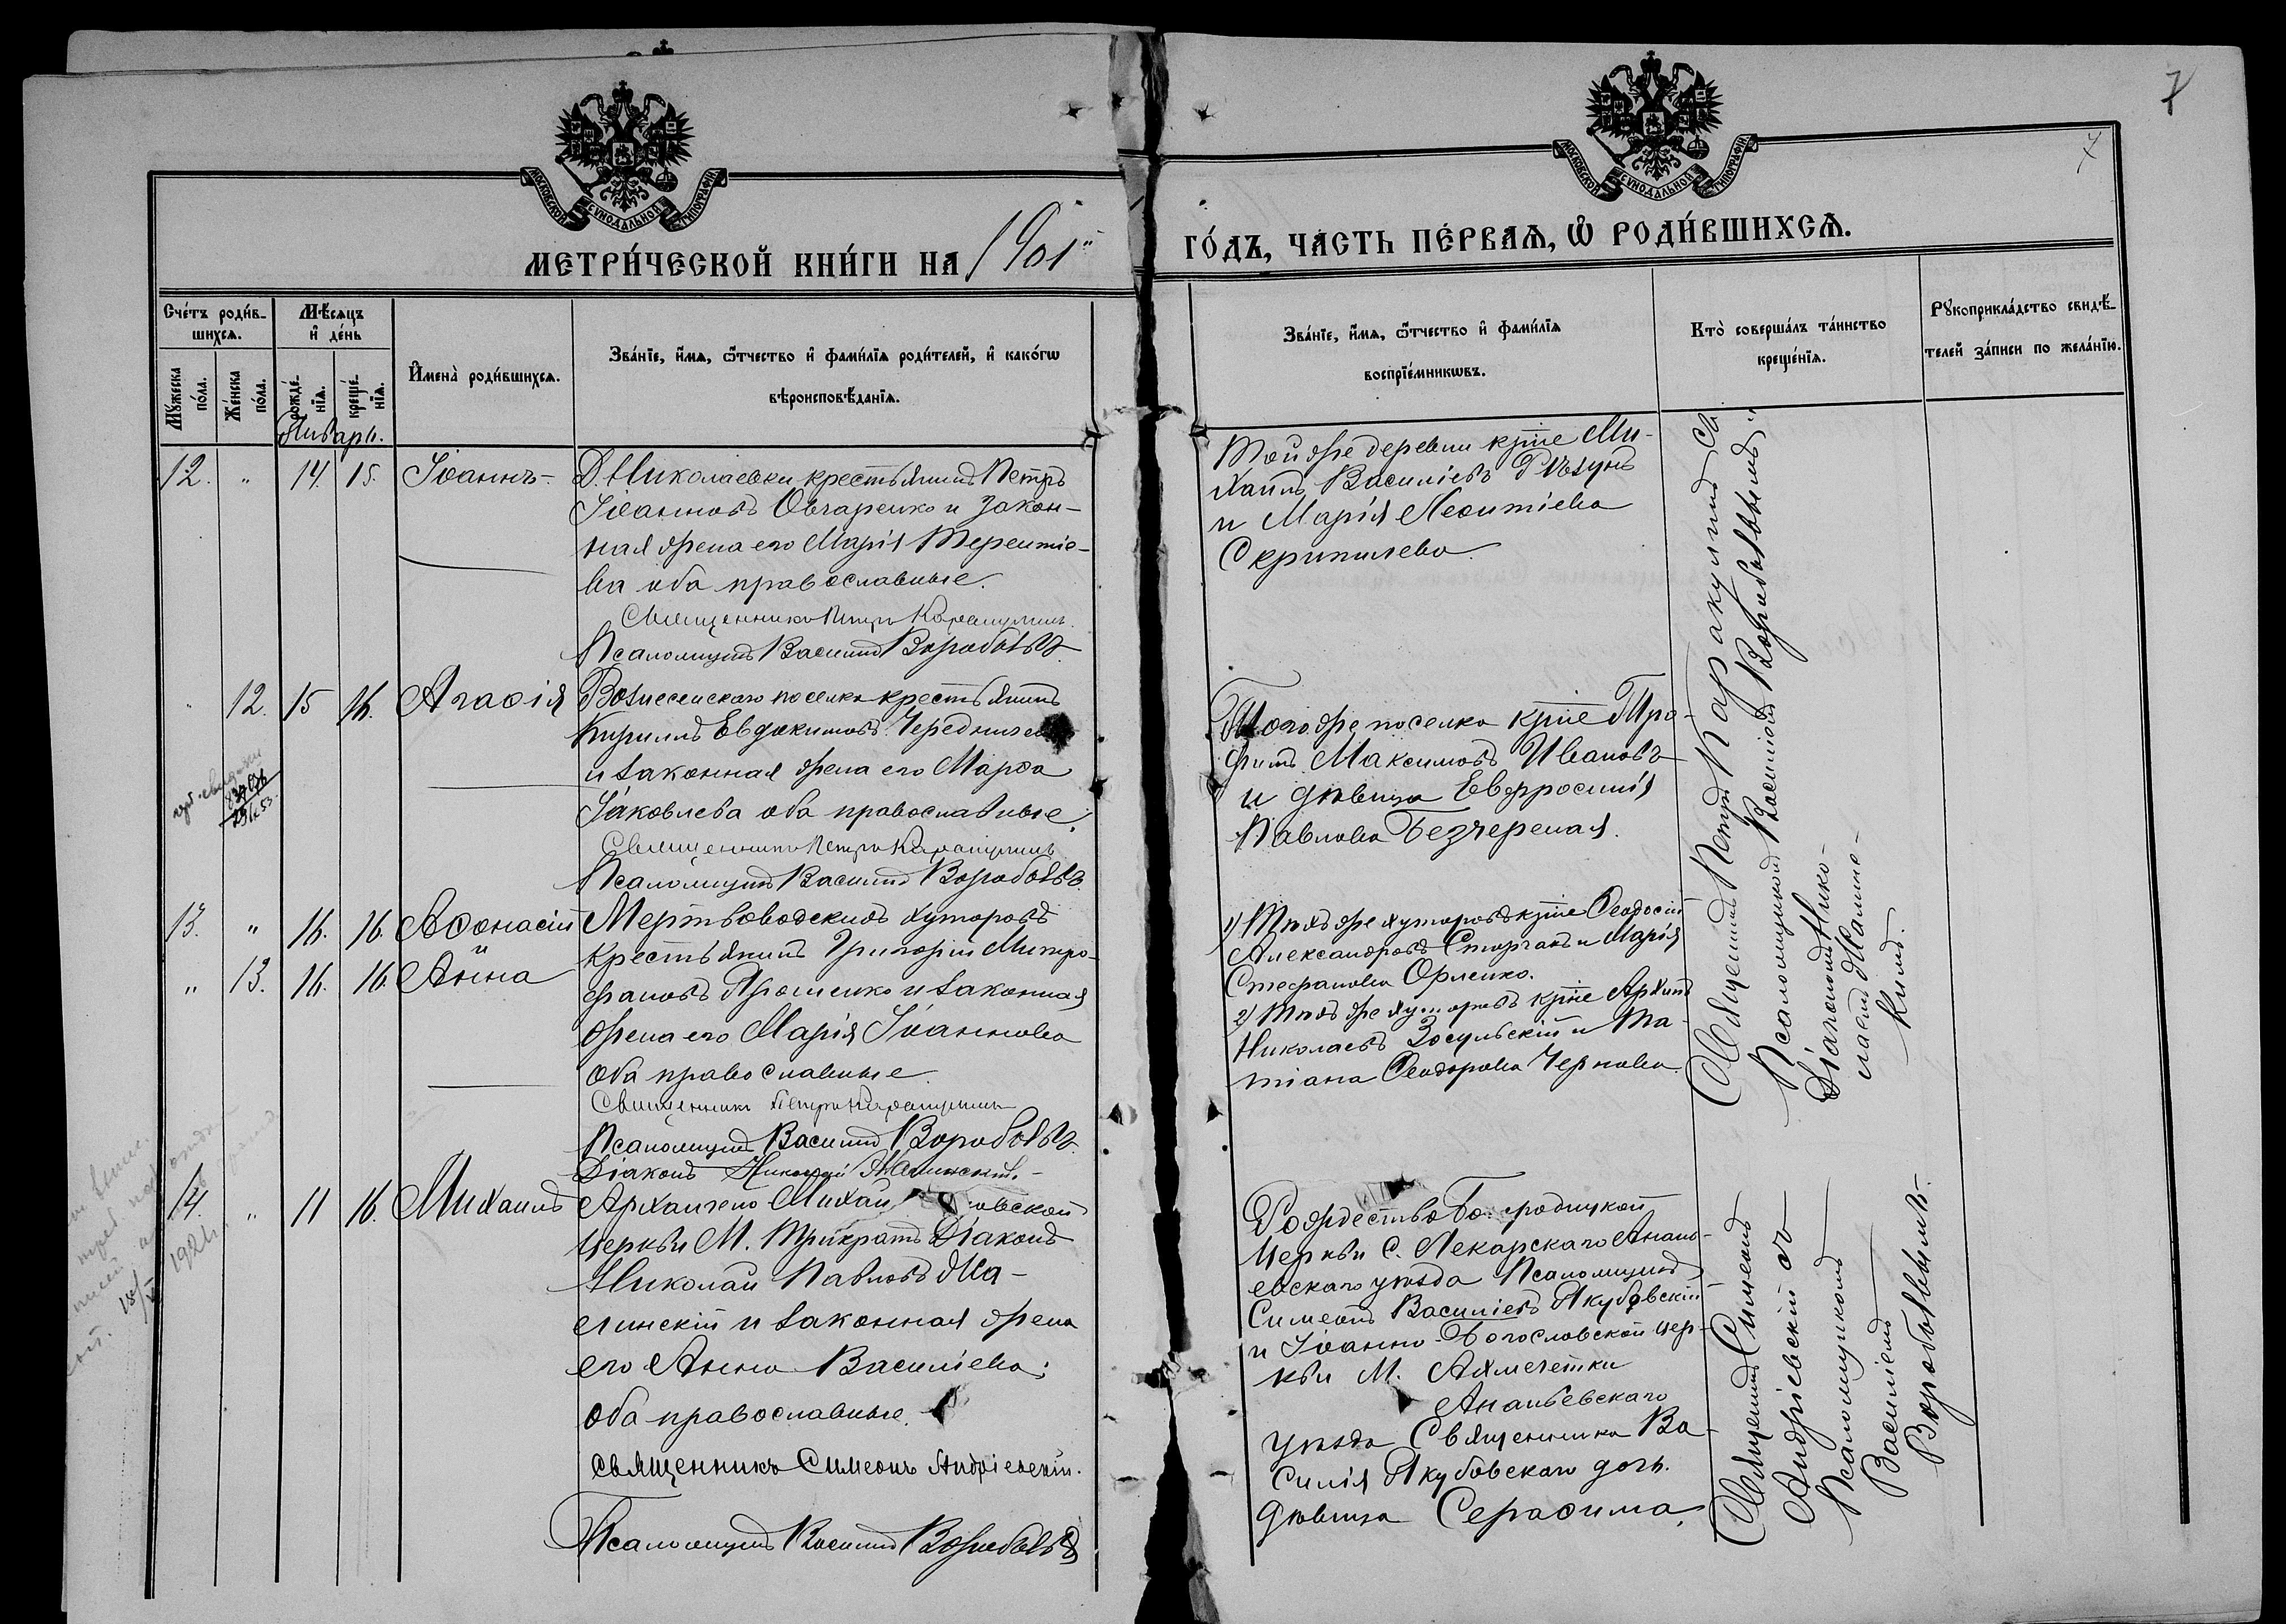 7
7
МОСКОВСКОЙ СѴНОДАЛЬНОЙ ТИПОГРАФІИ
МОСКОВСКОЙ СѴНОДАЛЬНОЙ ТИПОГРАФІИ
МЕТРИ́ЧЕСКОЙ КНИ́ГИ НА 1901
ГО́ДЪ, ЧА́СТЬ ПЕ́РВАѦ, Ѡ РОДИ́ВШИХСѦ.
Сче́тъ роди́в-
шихсѧ.
Мꙋ́жеска по́ла.
Же́нска по́ла.
Мѣ́сѧцъ
и де́нь
рожде́-
нїѧ.
креще́-
нїѧ.
Имена̀ роди́вшихсѧ.
Зва́нїе, и́мѧ, ѻ҆́тчество и҆ фами́лїѧ роди́телей, и҆ како́гѡ
вѣроисповѣ́данїѧ.
Зва́нїе, и́мѧ, ѻ҆́тчество и҆ фами́лїѧ
воспрїе́мникѡвъ.
Кто̀ соверша́лъ та́инство
креще́нїѧ.
Рꙋкоприкла́дство свидѣ́-
телей за́писи по жела́нїю.
Январь.
12. " 14. 15. Іоаннъ-
Д. Николаевки крестьянинъ Петръ
Іоанновъ Овчаренко и закон-
ная жена его Марія Терентіе-
ва оба православные.
Священникъ Петръ Каракулинъ.
Псаломщикъ Василій Воробьевъ
Той же деревни кр-не Ми-
хаилъ Василіевъ
и Марія Леонтіева
" 12. 15 16. Агаѳія
Вознесенскаго поселка крестьянинъ
Кириллъ Евдокимовъ
и законная жена его Марѳа
Іаковлева оба православные.
Священникъ Петръ Каракулинъ
Псаломщикъ Василій Воробьевъ.
Того же поселка кр-не Тро-
фимъ Максимовъ Ивановъ
и дѣвица Евфросинія
Павлова Безчереная.
13. " 16. 16. Аѳонасій
и
" 13. 16. 16. Анна
Мертвоводскихъ хуторовъ
крестьянинъ Григорій Митро-
фановъ Ярошенко и законная
жена его Марія Іоаннова
оба православные.
Священникъ Петръ Каракулинъ
Псаломщикъ Василій Воробьевъ
Діаконъ Николай Малинскій.-
1) Тѣхъ же хуторовъ кр-не Ѳеодосій
Александровъ Сторчакъ и Марія
Стефанова Орленко.
2) Тѣхъ же хуторовъ кр-не Архипъ
Николаевъ Зосульскій и Та-
тіана Ѳеодорова Чернова.
Священникъ Петръ Каракулинъ съ
Псаломщикомъ Василіемъ Воробьевымъ
Діакономъ Нико-
лаемъ Малинс-
кимъ.
14. " 11 16. Михаилъ
Архангело Михайловской
церкви М. Трикратъ Діаконъ
Николай Павловъ Ма-
линскій и законная жена
его Анна Василіева:
оба православные.
Священникъ Симеонъ Андріевскій.
Псаломщикъ Василій Воробьевъ
Рождество Богородицкой
церкви с. Лекарскаго Анань-
евскаго уѣзда Псаломщикъ
Симеонъ Василіевъ Якубовскій
и Іоанно-Богословской цер-
кви М. Ахмечетки
Ананьевскаго
уѣзда Священника Ва-
силія Якубовскаго дочь
дѣвица Серафима.
Священникъ Симеонъ
Андріевскій съ
Псаломщикомъ
Василіемъ
Воробьевымъ.